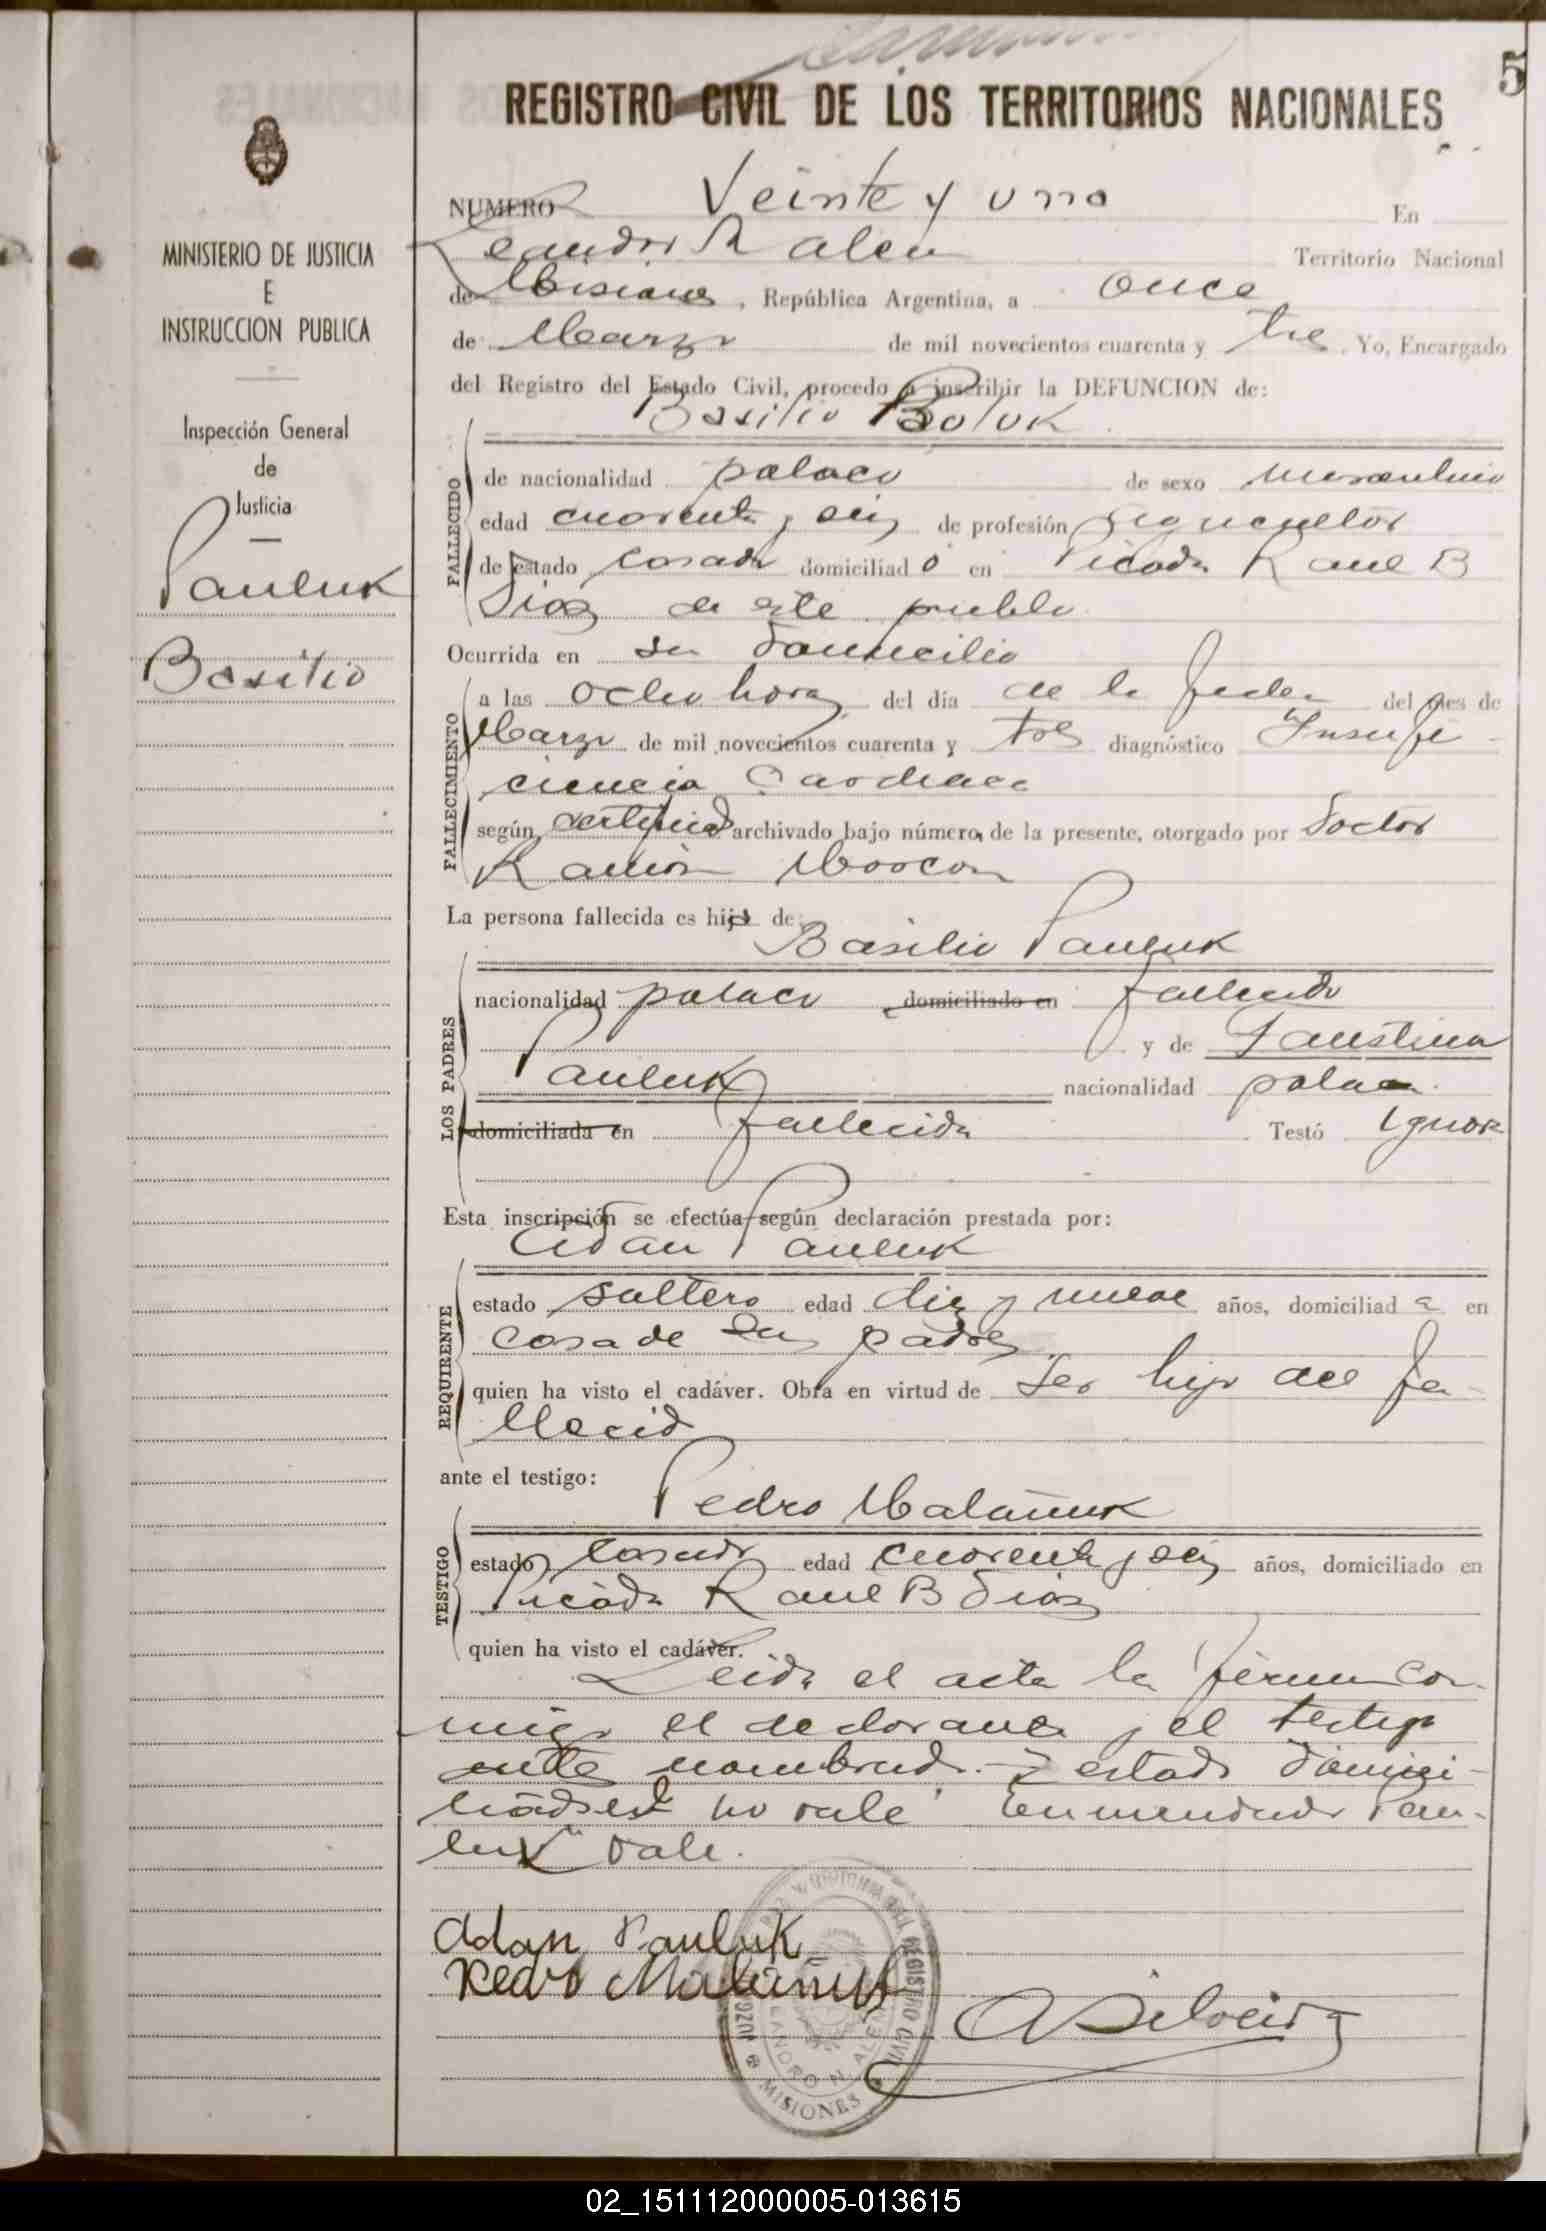 5
REGISTRO CIVIL DE LOS TERRITORIOS NACIONALES
MINISTERIO DE JUSTICIA
E
INSTRUCCION PUBLICA
Inspección General
de
Justicia
Pauluk
Basilio
NUMERO Veinte y uno En
Leandro N Alem Territorio Nacional
de Misiones, República Argentina, a once
de Marzo de mil novecientos cuarenta y tres. Yo, Encargado
del Registro del Estado Civil, procedo a inscribir la DEFUNCION de:
Basilio
FALLECIDO
de nacionalidad polaco de sexo masculino
edad cuarenta y seis de profesión agricultor
de estado casado domiciliado en Picada Raul B
Dias de este pueblo
Ocurrida en su domicilio
FALLECIMIENTO
a las ocho horas del día de la fecha del mes de
Marzo de mil novecientos cuarenta y tres diagnóstico Insufi-
ciencia Cardiaca
según certificado archivado bajo número de la presente, otorgado por Doctor
Ramón
La persona fallecida es hijo de:
Basilio Pauluk
LOS PADRES
nacionalidad polaco domiciliado en fallecido
y de Faustina
Pauluk nacionalidad polaca
domiciliada en fallecida Testó Ignora
Esta inscripción se efectúa según declaración prestada por:
Adan Pauluk
REQUIRENTE
estado soltero edad diez y nueve años, domiciliad a en
casa de sus padres
quien ha visto el cadáver. Obra en virtud de ser hijo del fa-
llecido
ante el testigo:
Pedro Malañuk
TESTIGO
estado casado edad cuarenta y seis años, domiciliado en
Picada Raul B Dias
quien ha visto el cadáver.
Leida el acta la firman con-
migo el declarante y el testigo
ante nombrado.- estado domici-
liado no vale Enmendado Pau-
luk vale.
Adan Pauluk
Pedro Malañuk
A Silveira
REGISTRO CIVIL
LEANDRO N. ALEM
MISIONES
02_151112000005-013615